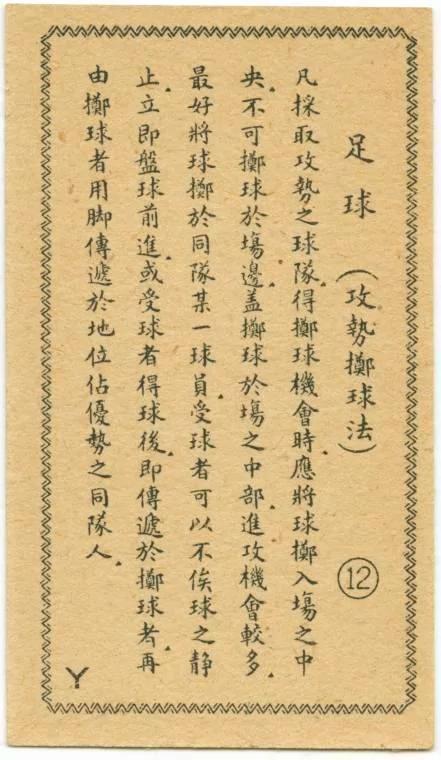 足球（攻勢擲球法）
⑫
凡採取攻勢之球隊．得擲球機會時．應將球擲入場之中
央．不可擲球於場邊．盖擲球於場之中部．進攻機會較多．
最好將球擲於同隊某一球員．受球者可以不俟球之靜
止．立即盤球前進．或受球者得球後．即傳遞於擲球者．再
由擲球者用脚傳遞於地位佔優勢之同隊人．
Y